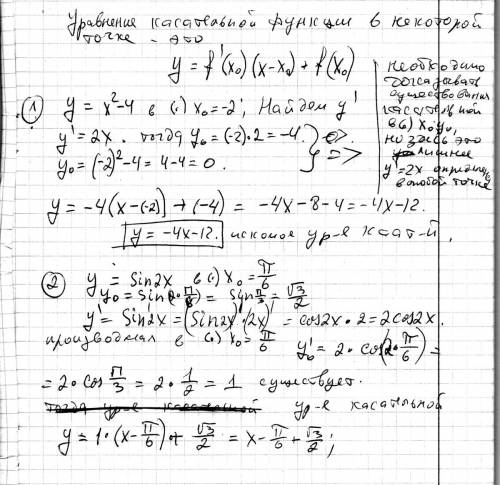 Уравнение касательной функции в некоторой
точке - это
y = f'(x₀)(x-x₀) + f(x₀)
необходимо
доказывать
существования
касательной
в (·) x₀y₀,
но здесь это
лишнее
y'=2x определена
в любой точке
① y = x²-4 в (·) x₀=-2, Найдем y'
y' = 2x. тогда y₀ = (-2)·2 = -4. } =>
y₀ = (-2)²-4 = 4-4 = 0. } =>
y = -4(x-(-2)) + (-4) = -4x-8-4 = -4x-12.
y = -4x-12. искомое ур-е касат-й.
② y = sin2x в (·) x₀ = π/6
y₀ = sin(2·π/6) = sin π/3 = √3/2
y' = sin2x = (sin2x)'·(2x)' = cos2x·2 = 2cos2x.
производная в (·) x₀ = π/6 y'₀ = 2·cos(2·π/6) =
= 2·cos π/3 = 2·1/2 = 1 существует.
ур-е касательной
y = 1·(x-π/6) + √3/2 = x-π/6+√3/2;